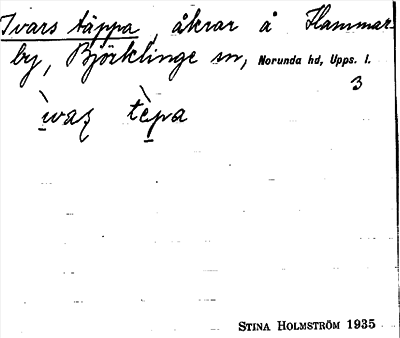 Ivars täppa, åkrar å Hammar-
by, Björklinge sn, Norunda hd, Upps. l.
3
ìvaʂ tèpa
STINA HOLMSTRÖM 1935